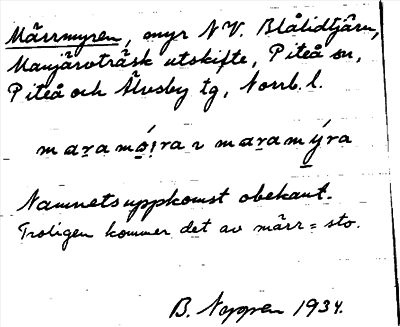 Märrmyren, myr N.V. Blålidtjärn,
Manjärvträsk utskifte, Piteå sn,
Piteå och Älvsby tg, Norrb. l.
maramó̤ịra ʅ maramýra
Namnets uppkomst obekant.
Troligen kommer det av märr = sto.
B. Nygren 1934.